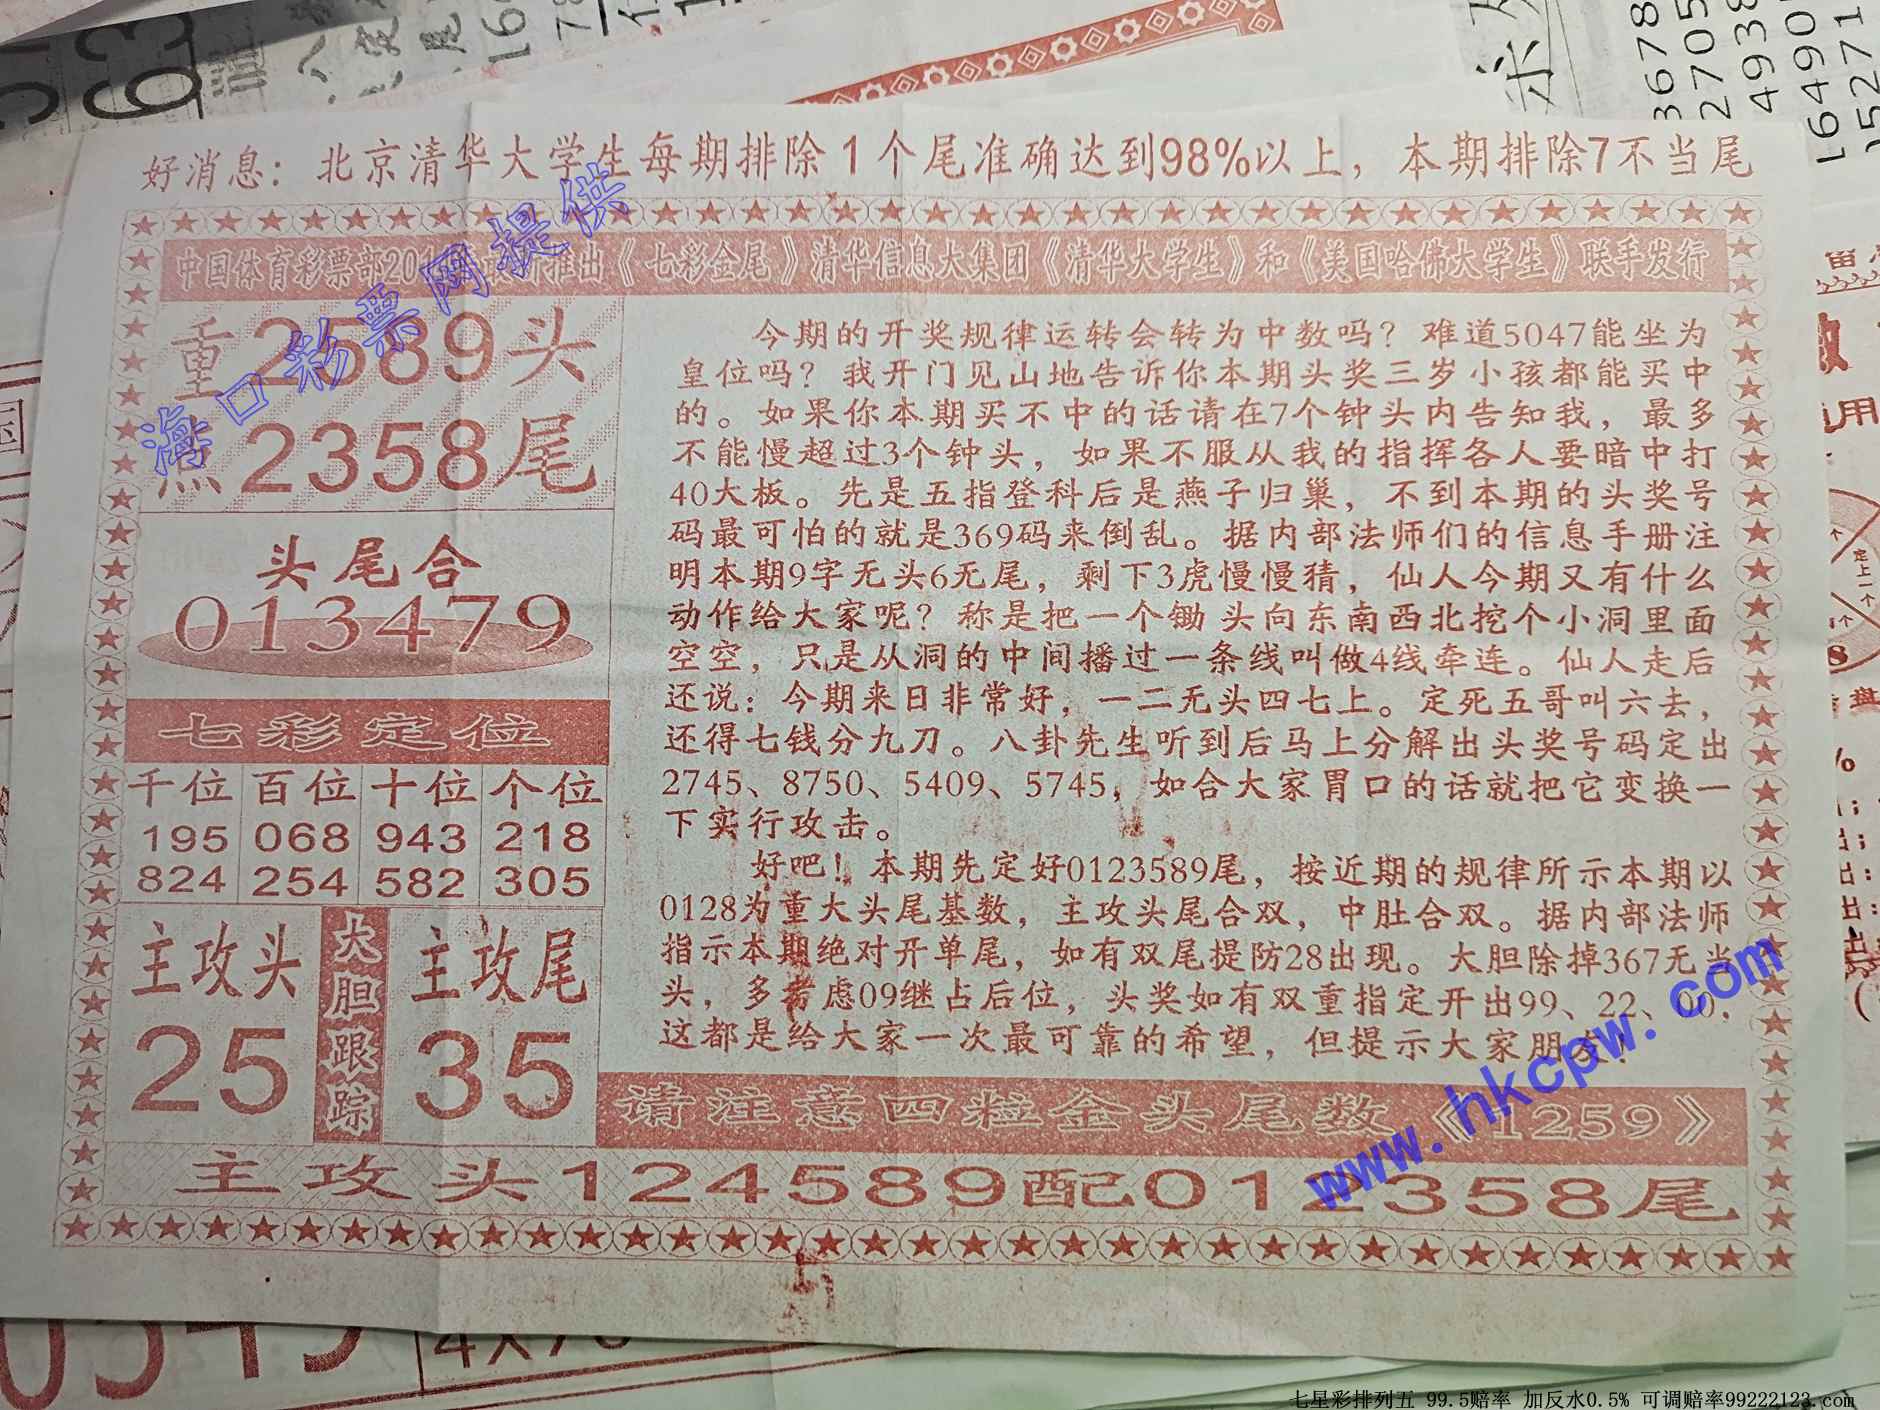 好消息：北京清华大学生每期排除1个尾准确达到98%以上，本期排除7不当尾
中国体育彩票部20 推出《七彩金尾》清华信息大集团《清华大学生》和《美国哈佛大学生》联手发行
重2589头
点2358尾
头尾合
013479
七彩定位
千位 百位 十位 个位
195 068 943 218
824 254 582 305
主攻头 25
大胆跟踪
主攻尾 35
今期的开奖规律运转会转为中数吗？难道5047能坐为
皇位吗？我开门见山地告诉你本期头奖三岁小孩都能买中
的。如果你本期买不中的话请在7个钟头内告知我，最多
不能慢超过3个钟头，如果不服从我的指挥各人要暗中打
40大板。先是五指登科后是燕子归巢，不到本期的头奖号
码最可怕的就是369码来倒乱。据内部法师们的信息手册注
明本期9字无头6无尾，剩下3虎慢慢猜，仙人今期又有什么
动作给大家呢？称是把一个锄头向东南西北挖个小洞里面
空空，只是从洞的中间播过一条线叫做4线牵连。仙人走后
还说：今期来日非常好，一二无头四七上。定死五哥叫六去，
还得七钱分九刀。八卦先生听到后马上分解出头奖号码定出
2745、8750、5409、5745，如合大家胃口的话就把它变换一
下实行攻击。
好吧！本期先定好0123589尾，按近期的规律所示本期以
0128为重大头尾基数，主攻头尾合双，中肚合双。据内部法师
指示本期绝对开单尾，如有双尾提防28出现。大胆除掉367无当
头，多考虑09继占后位，头奖如有双重指定开出99、22、00，
这都是给大家一次最可靠的希望，但提示大家朋友
请注意四粒金头尾数《1259》
主攻头124589配012358尾
海口彩票网提供
www.hkcpw.com
七星彩排列五 99.5赔率 加反水0.5% 可调赔率99222123.com